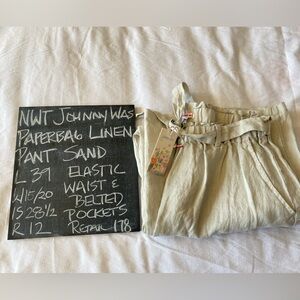 NWT JOHNNY WAS
PAPERBAG LINEN
PANT SAND
L 39 ELASTIC
W15/20 WAIST &
IS 28 1/2 BELTED
R 12 POCKETS
RETAIL 178